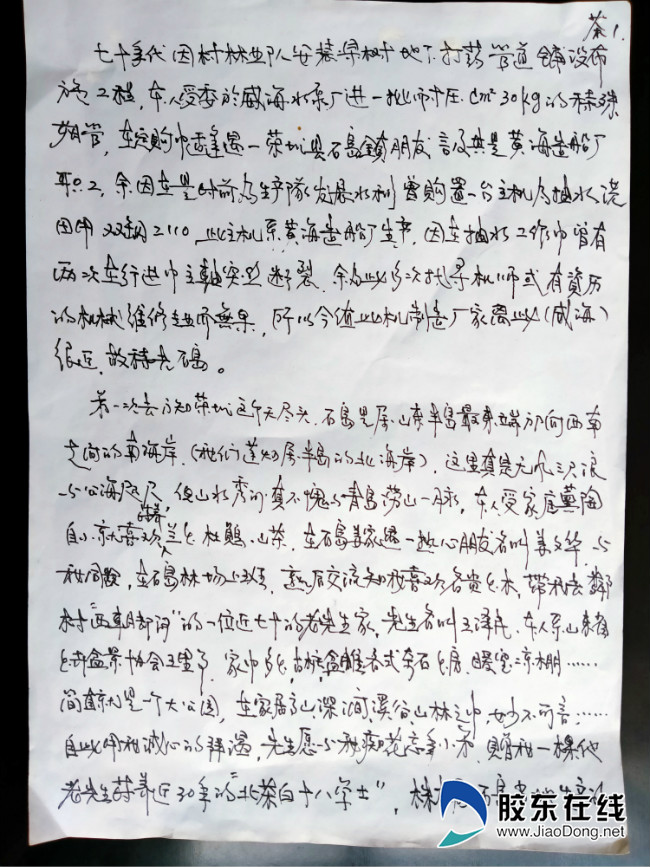 茶1.
七十年代因村林业队安装果树地下打药管道铺设布
施工程，本人受委於威海水泵厂进一批市压cm²30kg的
塑管，在定购中逢遇一荣城县石岛镇朋友言及其是黄海造船厂
职工，余因在是时前为生产隊发展水利曾购置一台主机为抽水浇
田用双钢2110，此主机系黄海造船厂生产，因在抽水工作中曾有
两次在行进中主軸突然断裂，余为此多次找寻机师或有資历
的机械维修者而無果，所以今值此机制造厂家离此（威海）
很近，故转去石岛。
第一次去方知荣城这个天尽头，石岛是居山东半岛最东端方向西南
之间的南海岸，（我们蓬处居半岛的北海岸），这里真是无风三尺浪
与公海咫尺，但山水秀河真不愧与青岛涝山一脉，本人受家庭薰陶
自小就喜欢养兰杜鵑、山茶，在石岛姜家遇一热心朋友名叫姜文华，与
我同龄，在石岛林场上班，熟后交流知我喜欢各貴花木，帶我去鄰
村“西朝陽河”的一位近七十的老先生家，先生名叫王泽民，本人系山东省
花卉盆景协会王理事，家中多花，古树盆雕各式奇石花房、暖室、凉棚……
简直就是一个大公园，在家居高山深涧溪谷山林之中，妙不可言……
自此用我诚心的拜遇，先生愿与我痴花忘年小弟，赐我一棵他
老先生莳养近30年的“北茶白十八学士”，
胶东在线
www.JiaoDong.net